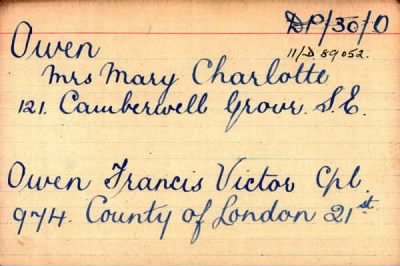 DP/30/O
Owen
11/D. 89052.
Mrs Mary Charlotte
121. Camberwell Grove. S.E.
Owen Francis Victor Cpl.
974. County of London 21st